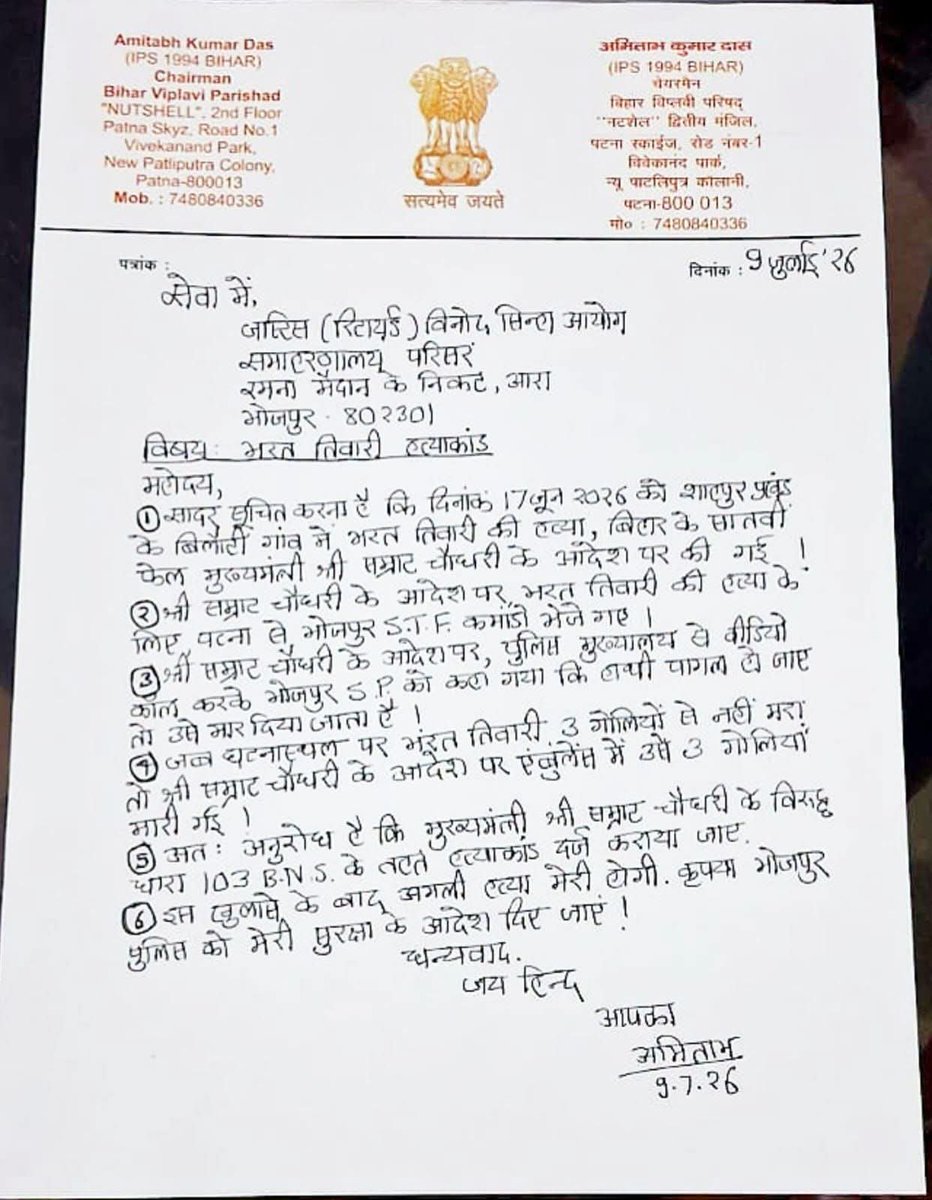 Amitabh Kumar Das
(IPS 1994 BIHAR)
Chairman
Bihar Viplavi Parishad
"NUTSHELL", 2nd Floor
Patna Skyz, Road No.1
Vivekanand Park,
New Patliputra Colony,
Patna-800013
Mob. : 7480840336
सत्यमेव जयते
अमिताभ कुमार दास
(IPS 1994 BIHAR)
चेयरमैन
बिहार विप्लवी परिषद्
"नटशेल" द्वितीय मंजिल,
पटना स्काईज, रोड नंबर-1
विवेकानंद पार्क,
न्यू पाटलिपुत्र कॉलानी,
पटना-800 013
मो० : 7480840336
पत्रांक :
दिनांक : 9 जुलाई '26
सेवा में,
जस्टिस (रिटायर्ड) विनोद सिन्हा आयोग
समाहरणालय परिसर
रमना मैदान के निकट, आरा
भोजपुर - 802301
विषय: भरत तिवारी हत्याकांड
महोदय,
① सादर सूचित करना है कि दिनांक 17 जून 2026 को शाहपुर प्रखंड
के बिलौटी गांव में भरत तिवारी की हत्या, बिहार के सातवीं
फेल मुख्यमंत्री श्री सम्राट चौधरी के आदेश पर की गई !
② श्री सम्राट चौधरी के आदेश पर भरत तिवारी की हत्या के
लिए, पटना से भोजपुर S.T.F. कमांडो भेजे गए ।
③ श्री सम्राट चौधरी के आदेश पर, पुलिस मुख्यालय से वीडियो
कॉल करके भोजपुर S.P. को कहा गया कि हाथी पागल हो जाए
तो उसे मार दिया जाता है !
④ जब घटनास्थल पर भरत तिवारी 3 गोलियों से नहीं मरा
तो श्री सम्राट चौधरी के आदेश पर एंबुलेंस में उसे 3 गोलियां
मारी गईं !
⑤ अतः अनुरोध है कि मुख्यमंत्री श्री सम्राट चौधरी के विरुद्ध
धारा 103 B.N.S. के तहत हत्याकांड दर्ज कराया जाए.
⑥ इस खुलासे के बाद अगली हत्या मेरी होगी. कृपया भोजपुर
पुलिस को मेरी सुरक्षा के आदेश दिए जाएं !
धन्यवाद.
जय हिन्द
आपका
अमिताभ
9.7.26